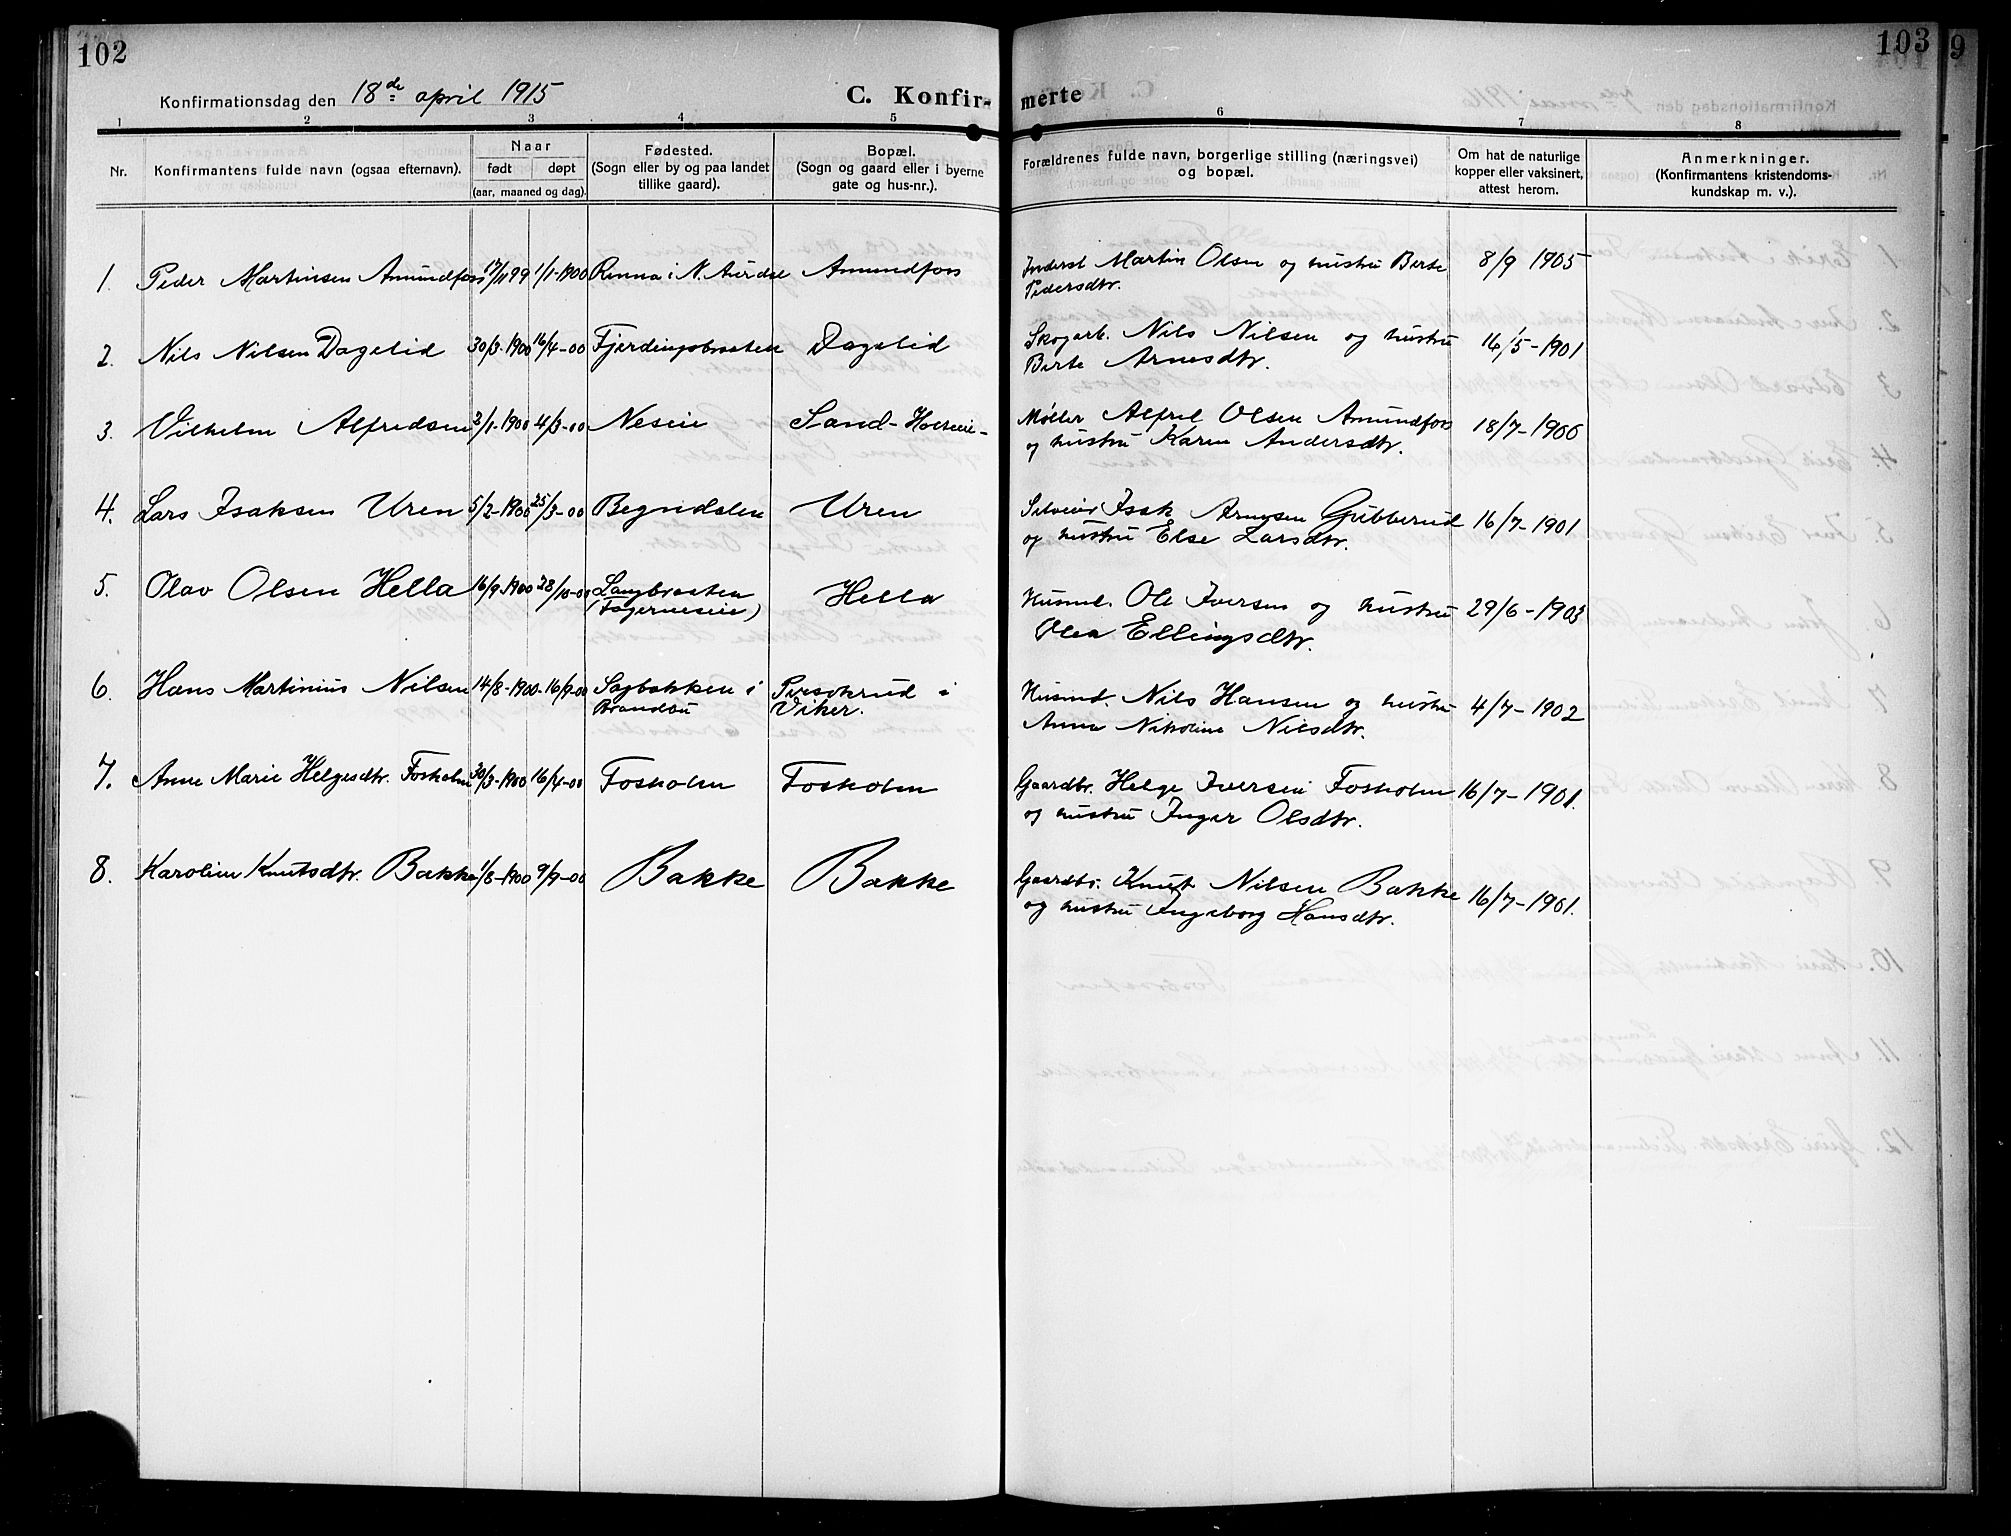 102
103
9
Konfirmationsdag den 18de april 1915
C. Konfir-
merte
1 2 3 4 5 6 7 8
Nr.
Konfirmantens fulde navn (ogsaa efternavn).
Naar
født døpt
(aar, maaned og dag).
Fødested.
(Sogn eller by og paa landet
tillike gaard).
Bopæl.
(Sogn og gaard eller i byerne
gate og hus-nr.).
Forældrenes fulde navn, borgerlige stilling (næringsvei)
og bopæl.
Om hat de naturlige
kopper eller vaksinert,
attest herom.
Anmerkninger.
(Konfirmantens kristendoms-
kundskap m. v.).
1. Peder Martinsen Amundfoss 17/11 99 1/1-1900 Rinna i N. Aurdal Amundfoss Inderst Martin Olsen og hustru Berte 8/9 1905
Pedersdtr.
2. Nils Nilsen Dagslid 30/3-1900 16/4-00 Fjerdingsbraaten Dagslid Skogarb. Nils Nilsen og hustru 16/5-1901
Birte Arnesdtr.
3. Vilhelm Alfredsen 3/1-1900 4/3-00 Neseie Sand- Møller Alfred Olsen Amundfoss 18/7-1900
og hustru Karen Andersdtr.
4. Lars Isaksen Uren 5/2-1900 25/3-00 Begndalen Uren Selveier Isak Arnesen Gubberud 16/7-1901
og hustru Else Larsdtr.
5. Olav Olsen Hella 16/9-1900 28/10-00 Langbraaten Hella Husmd. Ole Iversen og hustru 29/6-1903
(Fagerneseie) Olea Ellingsdtr.
6. Hans Martinius Nilsen 14/8-1900 16/9-00 Sagbakken i i Husmd. Nils Hansen og hustru 4/7-1902
Brandbu Viker. Anne Nikoline Nilsdtr.
7. Anne Marie Helgesdtr. Fosholm 30/3-1900 16/4-00 Fosholm Fosholm Gaardbr. Helge Iversen Fosholm 16/7-1901.
og hustru Inger Olsdtr.
8. Karoline Knutsdtr. Bakke 1/8-1900 9/9-00 Bakke Bakke Gaardbr. Knut Nilsen Bakke 16/7-1901.
og hustru Ingeborg Hansdtr.